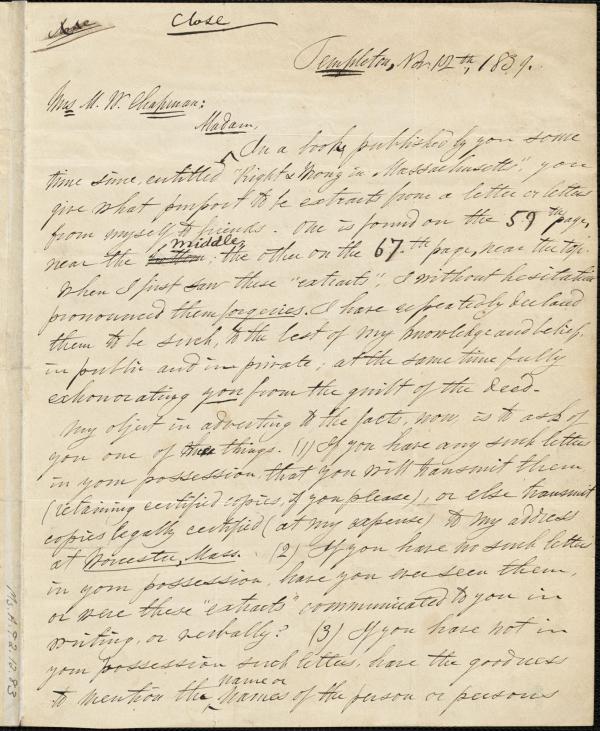 Close
Close
Templeton, Nov. 12th, 1839.
Mrs M. W. Chapman:
Madam,
In a book, published by you some
time since, entitled "Right & Wrong in Massachusetts", you
give what purport to be extracts from a letter or letters
from myself to friends. One is found on the 59th page,
near the bottom middle; the other on the 67.th page, near the top.
When I first saw these "extracts", I without hesitation
pronounced them forgeries. I have repeatedly declared
them to be such, to the best of my knowledge and belief,
in public and in private; at the same time fully
exhonorating you from the guilt of the deed.
My object in adverting to the facts, now, is to ask of
you one of three things. (1) If you have any such letters
in your possession, that you will transmit them
(retaining certified copies, if you please), or else transmit
copies legally certified (at my expense) to my address
at Worcester, Mass. (2) If you have no such letters
in your possession, have you ever seen them,
or were these "extracts" communicated to you in
writing, or verbally? (3) If you have not in
your possession such letters, have the goodness
to mention the name or names of the person or persons